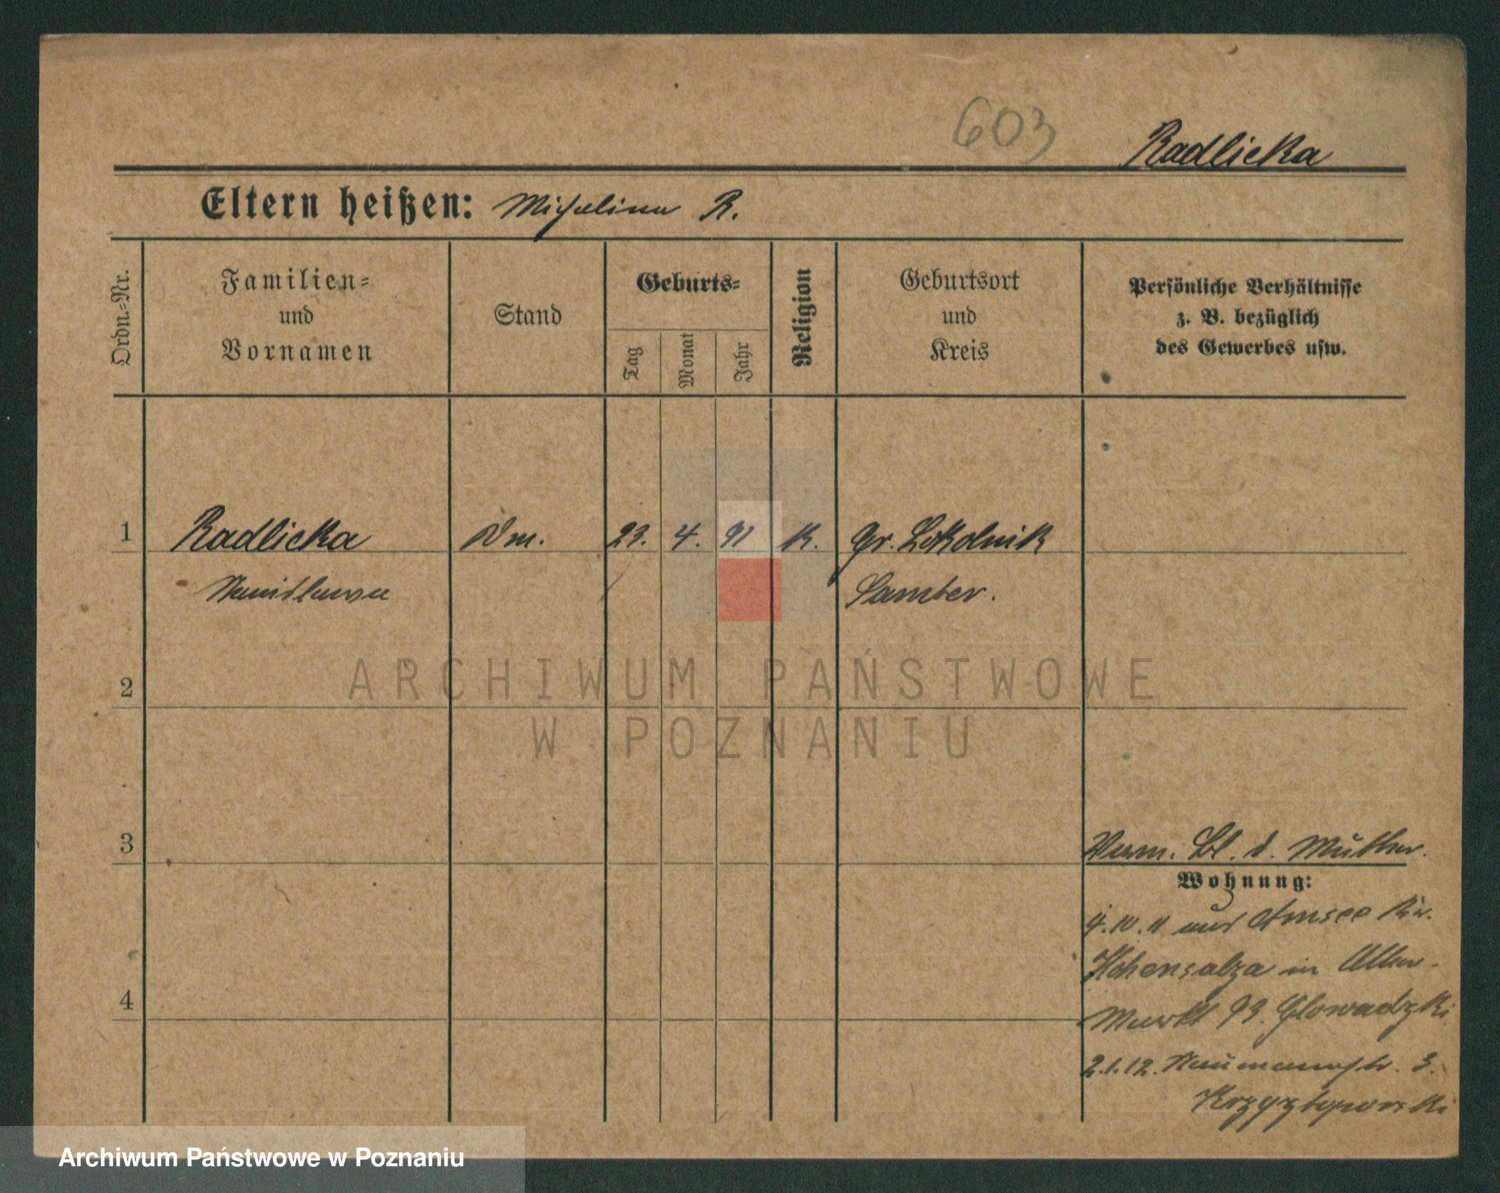 603
Radlicka
Eltern heißen: Michalina R.
Ordn.-Nr.
Familien-
und
Vornamen
Stand
Geburts-
Tag
Monat
Jahr
Religion
Geburtsort
und
Kreis
Persönliche Verhältnisse
z. B. bezüglich
des Gewerbes usw.
1 Radlicka Dm. 23. 4. 91 K. Gr. Sokolnik
Stanislawa Samter.
ARCHIWUM PAŃSTWOWE
W POZNANIU
2
3
Verm. Bl. d. Mutter.
Wohnung:
4.10.11 aus Amsee Kr.
4
Hohensalza in Alter
Markt 93. Glowadzki
2.1.12. Naumannstr. 3.
Archiwum Państwowe w Poznaniu